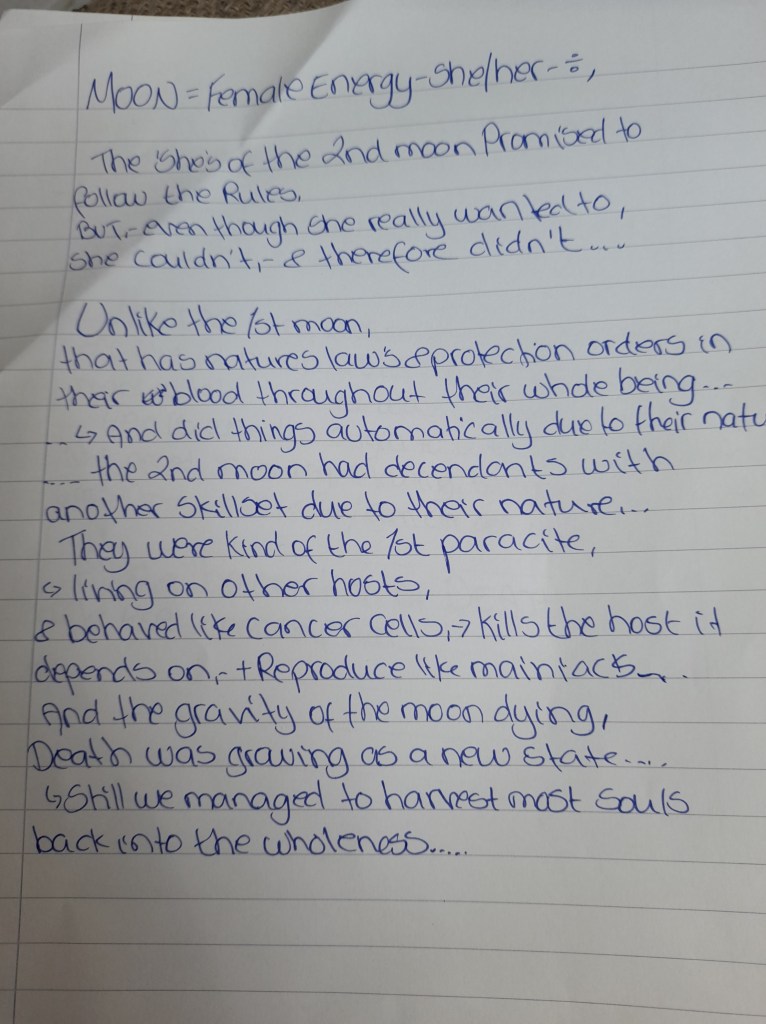 MOON = Female Energy - She/her - ÷,
The 'she's of the 2nd moon Promised to
follow the Rules.
BUT,- even though she really wanted to,
she couldn't,- & therefore didn't....
Unlike the 1st moon,
that has natures laws & protection orders in
their blood throughout their whole being...
... ↳ And did things automatically due to their natu
.... the 2nd moon had decendants with
another skillset due to their nature...
They were kind of the 1st paracite,
↳ living on other hosts,
& behaved like cancer cells, → kills the host it
depends on,- + Reproduce like mainiacs
And the gravity of the moon dying,
Death was growing as a new state....
↳ Still we managed to harvest most souls
back into the wholeness.....